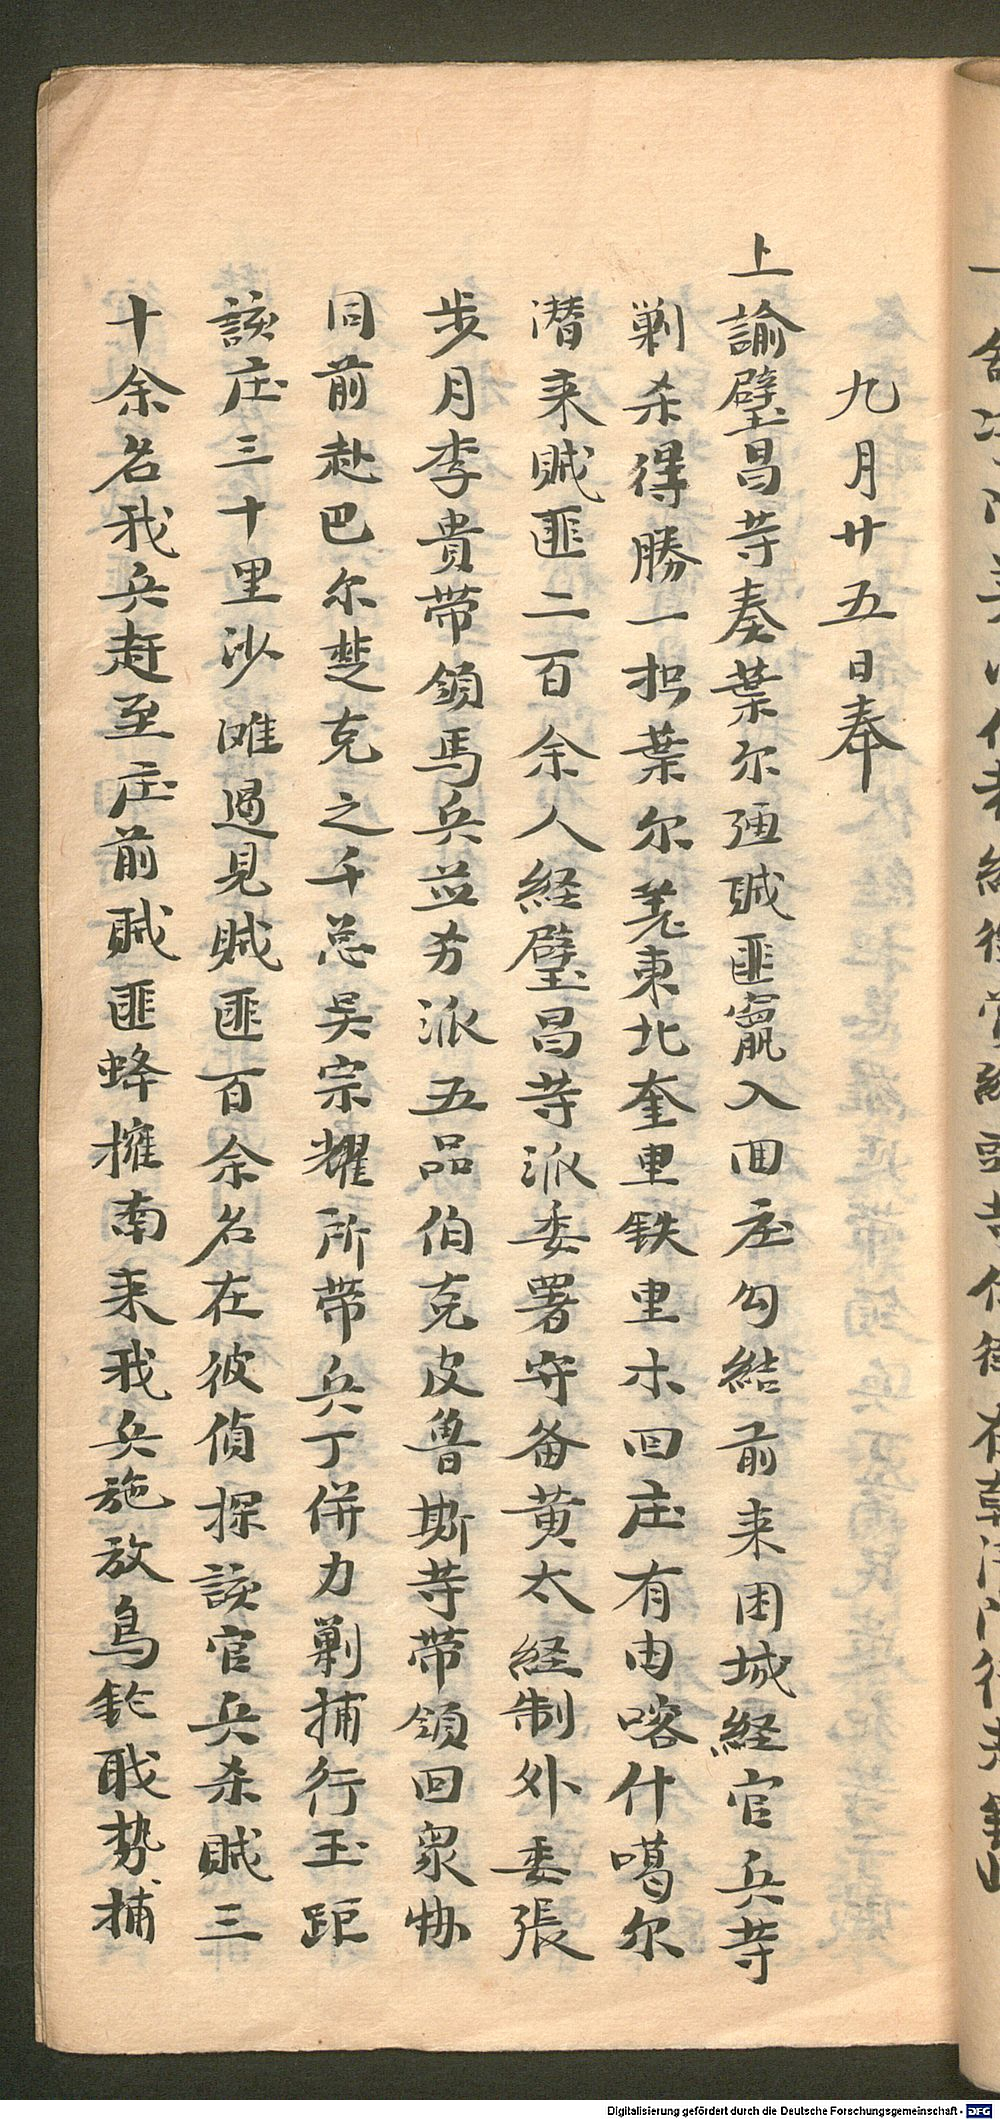 九月廿五日奉
上諭璧昌等奏葉尔羌賊匪竄入回庄勾結前来困城経官兵等
剿杀得勝一摺葉尔羌東北奎里铁里木回庄有由喀什噶尔
潜来贼匪二百余人経璧昌等派委署守备黄太経制外委張
步月李貴带领馬兵並另派五品伯克皮魯斯等带领回衆協
同前赴巴尔楚克之千总吴宗耀所带兵丁併力剿捕行至距
該庄三十里沙滩遇見贼匪百余名在彼偵探該官兵杀贼三
十余名我兵赶至庄前贼匪蜂擁南来我兵施放鳥鈴戢势捕